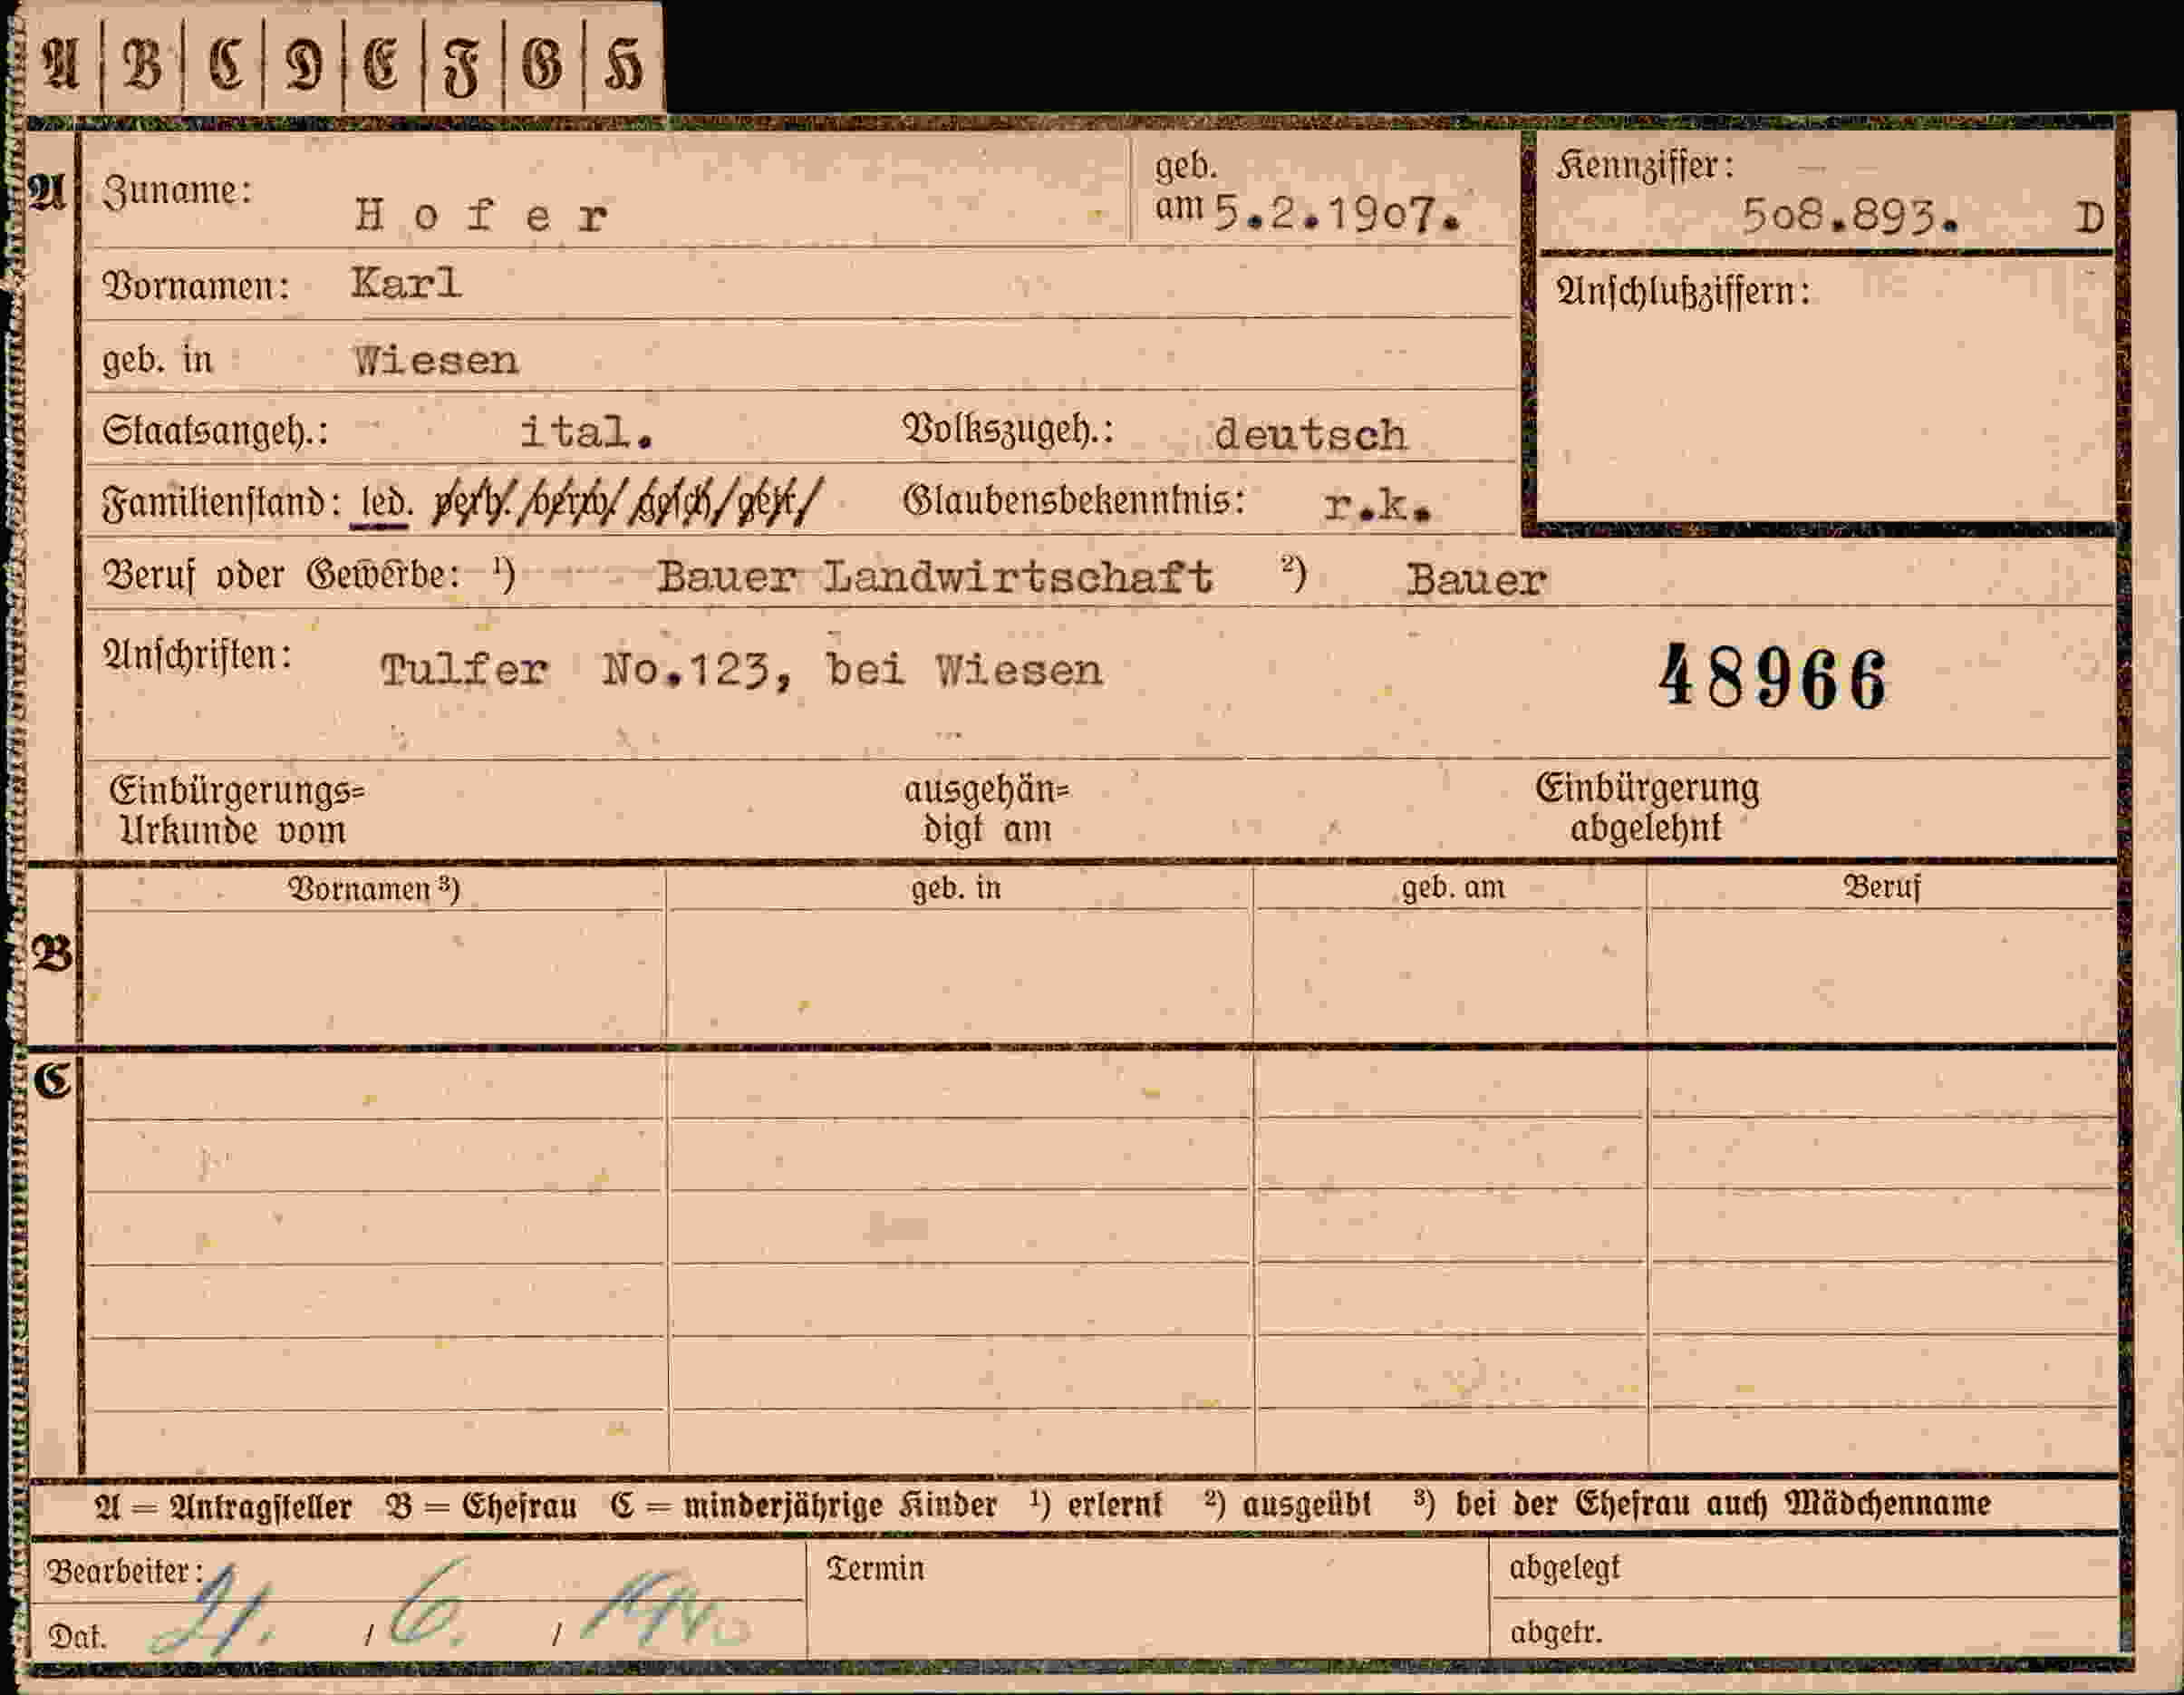 A | B | C | D | E | F | G | H
A Zuname: Hofer geb. am 5.2.1907. Kennziffer: 508.893. D
Vornamen: Karl Anschlußziffern:
geb. in Wiesen
Staatsangeh.: ital. Volkszugeh.: deutsch
Familienstand: led. verh. / verw. / gesch. / getr. / Glaubensbekenntnis: r.k.
Beruf oder Gewerbe: ¹) Bauer Landwirtschaft ²) Bauer
Anschriften: Tulfer No.123, bei Wiesen 48966
Einbürgerungs= ausgehän= Einbürgerung
Urkunde vom digt am abgelehnt
Vornamen ³) geb. in geb. am Beruf
B
C
A = Antragsteller B = Ehefrau C = minderjährige Kinder ¹) erlernt ²) ausgeübt ³) bei der Ehefrau auch Mädchenname
Bearbeiter: Termin abgelegt
Dat. 21. / 6. / abgetr.